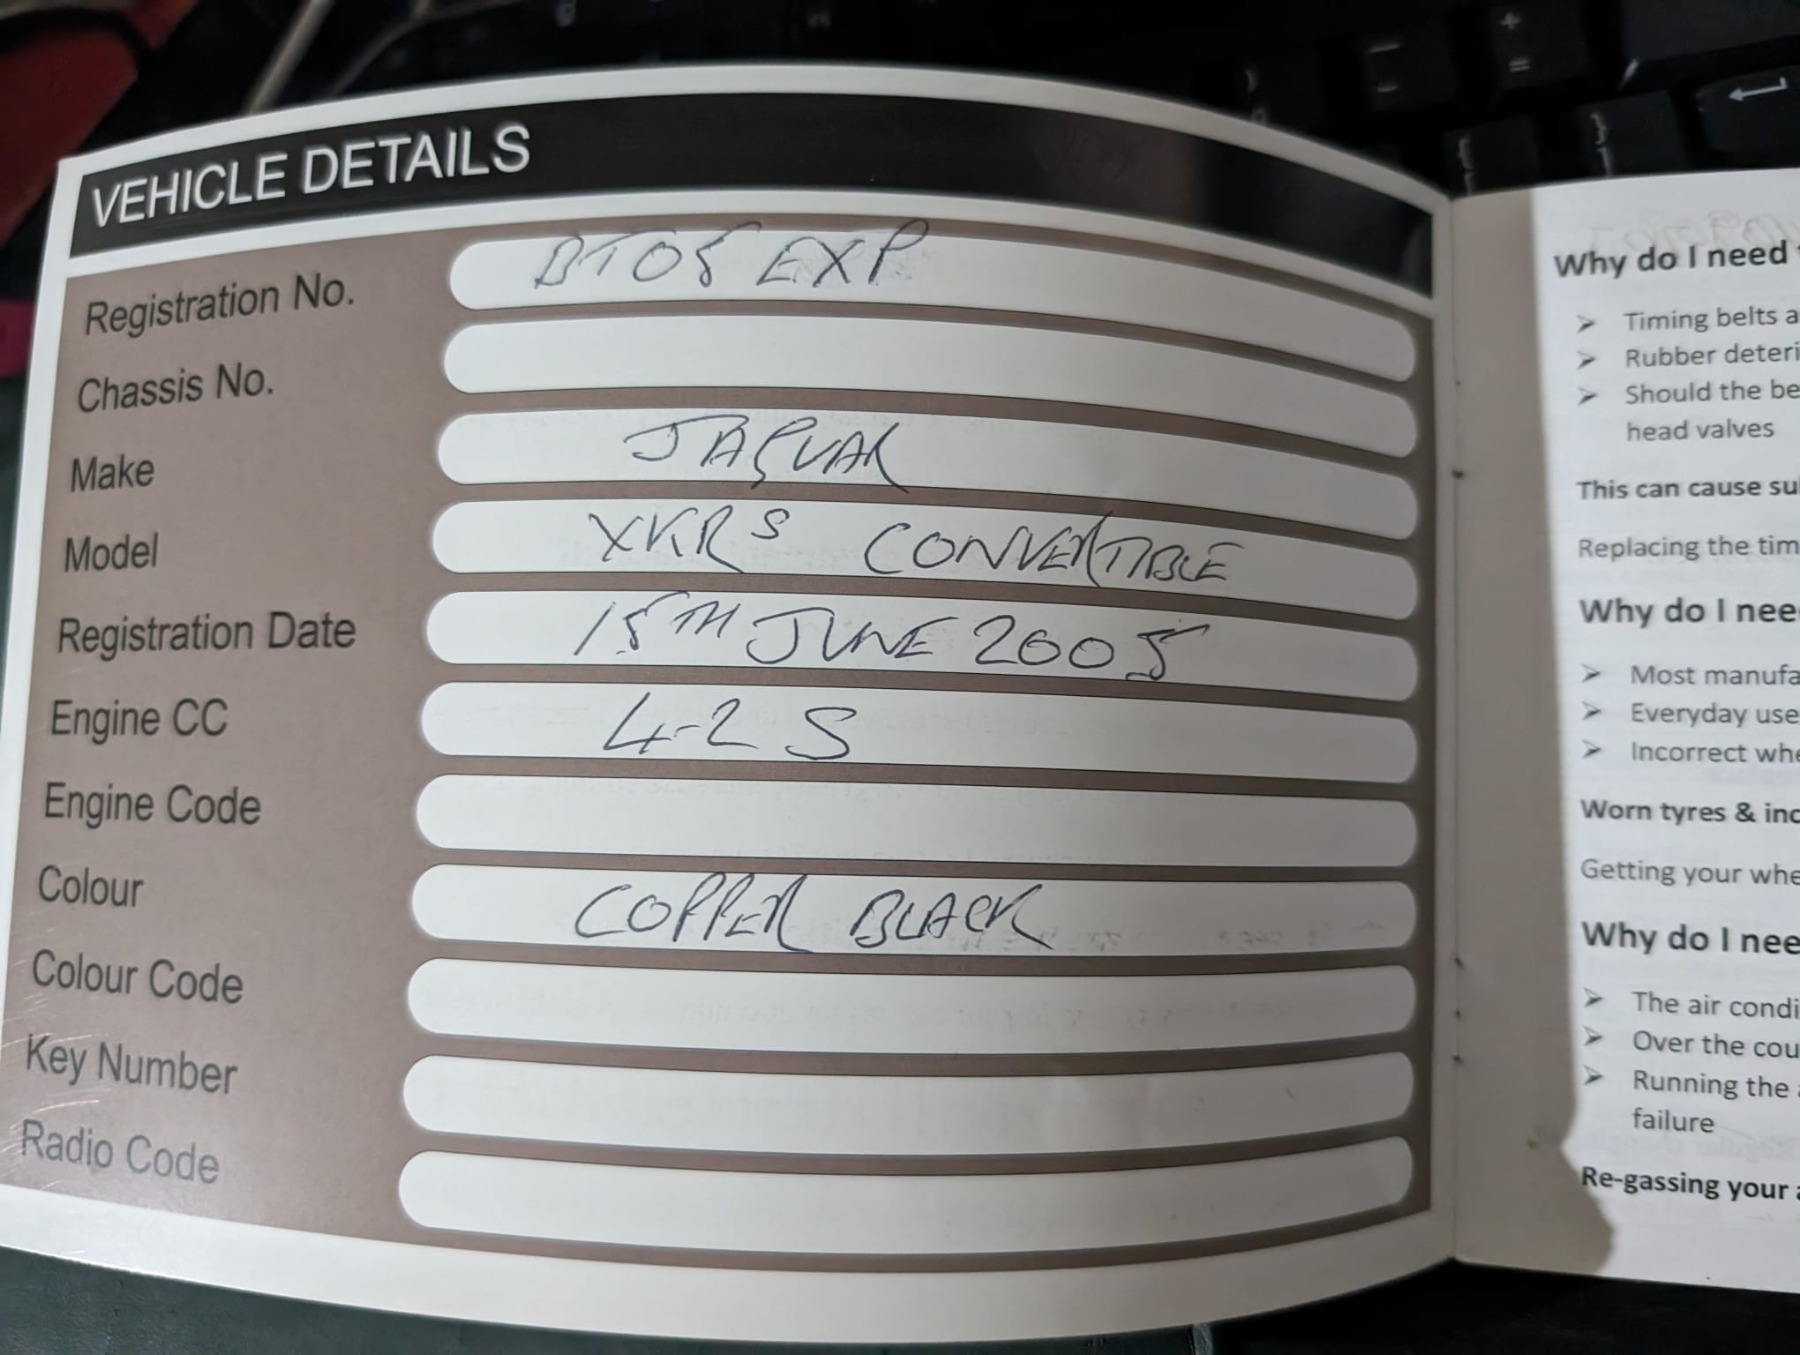 VEHICLE DETAILS
Registration No. BT05 EXP
Chassis No.
Make JAGUAR
Model XKRS CONVERTIBLE
Registration Date 15TH JUNE 2005
Engine CC 4-2 S
Engine Code
Colour COPPER BLACK
Colour Code
Key Number
Radio Code
Why do I need
➢ Timing belts a
➢ Rubber deteri
➢ Should the be
head valves
This can cause su
Replacing the tim
Why do I nee
➢ Most manufa
➢ Everyday use
➢ Incorrect whe
Worn tyres & inc
Getting your whe
Why do I nee
➢ The air condi
➢ Over the cou
➢ Running the
failure
Re-gassing your a